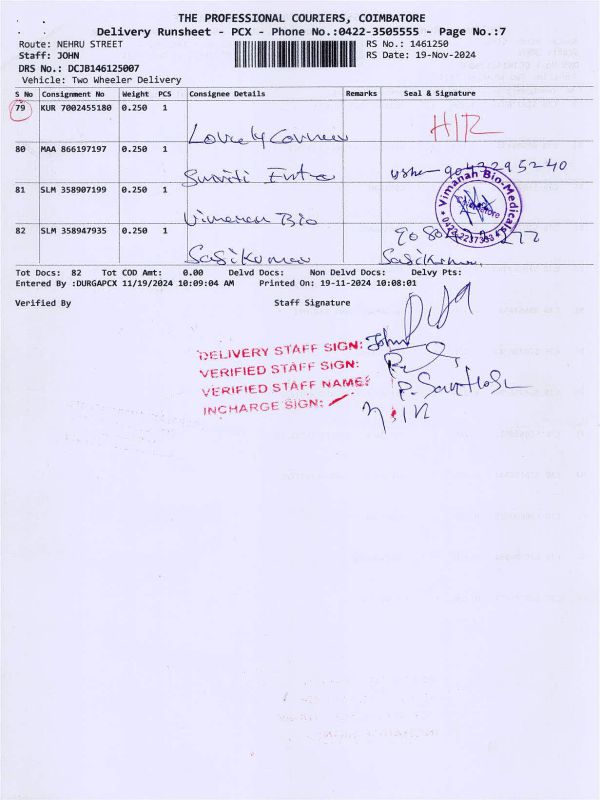 THE PROFESSIONAL COURIERS, COIMBATORE
Delivery Runsheet - PCX - Phone No.:0422-3505555 - Page No.:7
Route: NEHRU STREET RS No.: 1461250
Staff: JOHN RS Date: 19-Nov-2024
DRS No.: DCJB146125007
Vehicle: Two Wheeler Delivery
S No Consignment No Weight PCS Consignee Details Remarks Seal & Signature
79 KUR 7002455180 0.250 1
Lovely Corner
80 MAA 866197197 0.250 1
81 SLM 358907199 0.250 1
Vimanah Bio
Vimanah Bio-Medicals
Coimbatore
82 SLM 358947935 0.250 1
Sasikumar Sasikumar
Tot Docs: 82 Tot COD Amt: 0.00 Delvd Docs: Non Delvd Docs: Delvy Pts:
Entered By :DURGAPCX 11/19/2024 10:09:04 AM Printed On: 19-11-2024 10:08:01
Verified By Staff Signature
DELIVERY STAFF SIGN: John
VERIFIED STAFF SIGN:
VERIFIED STAFF NAME: P. Santhosh
INCHARGE SIGN: